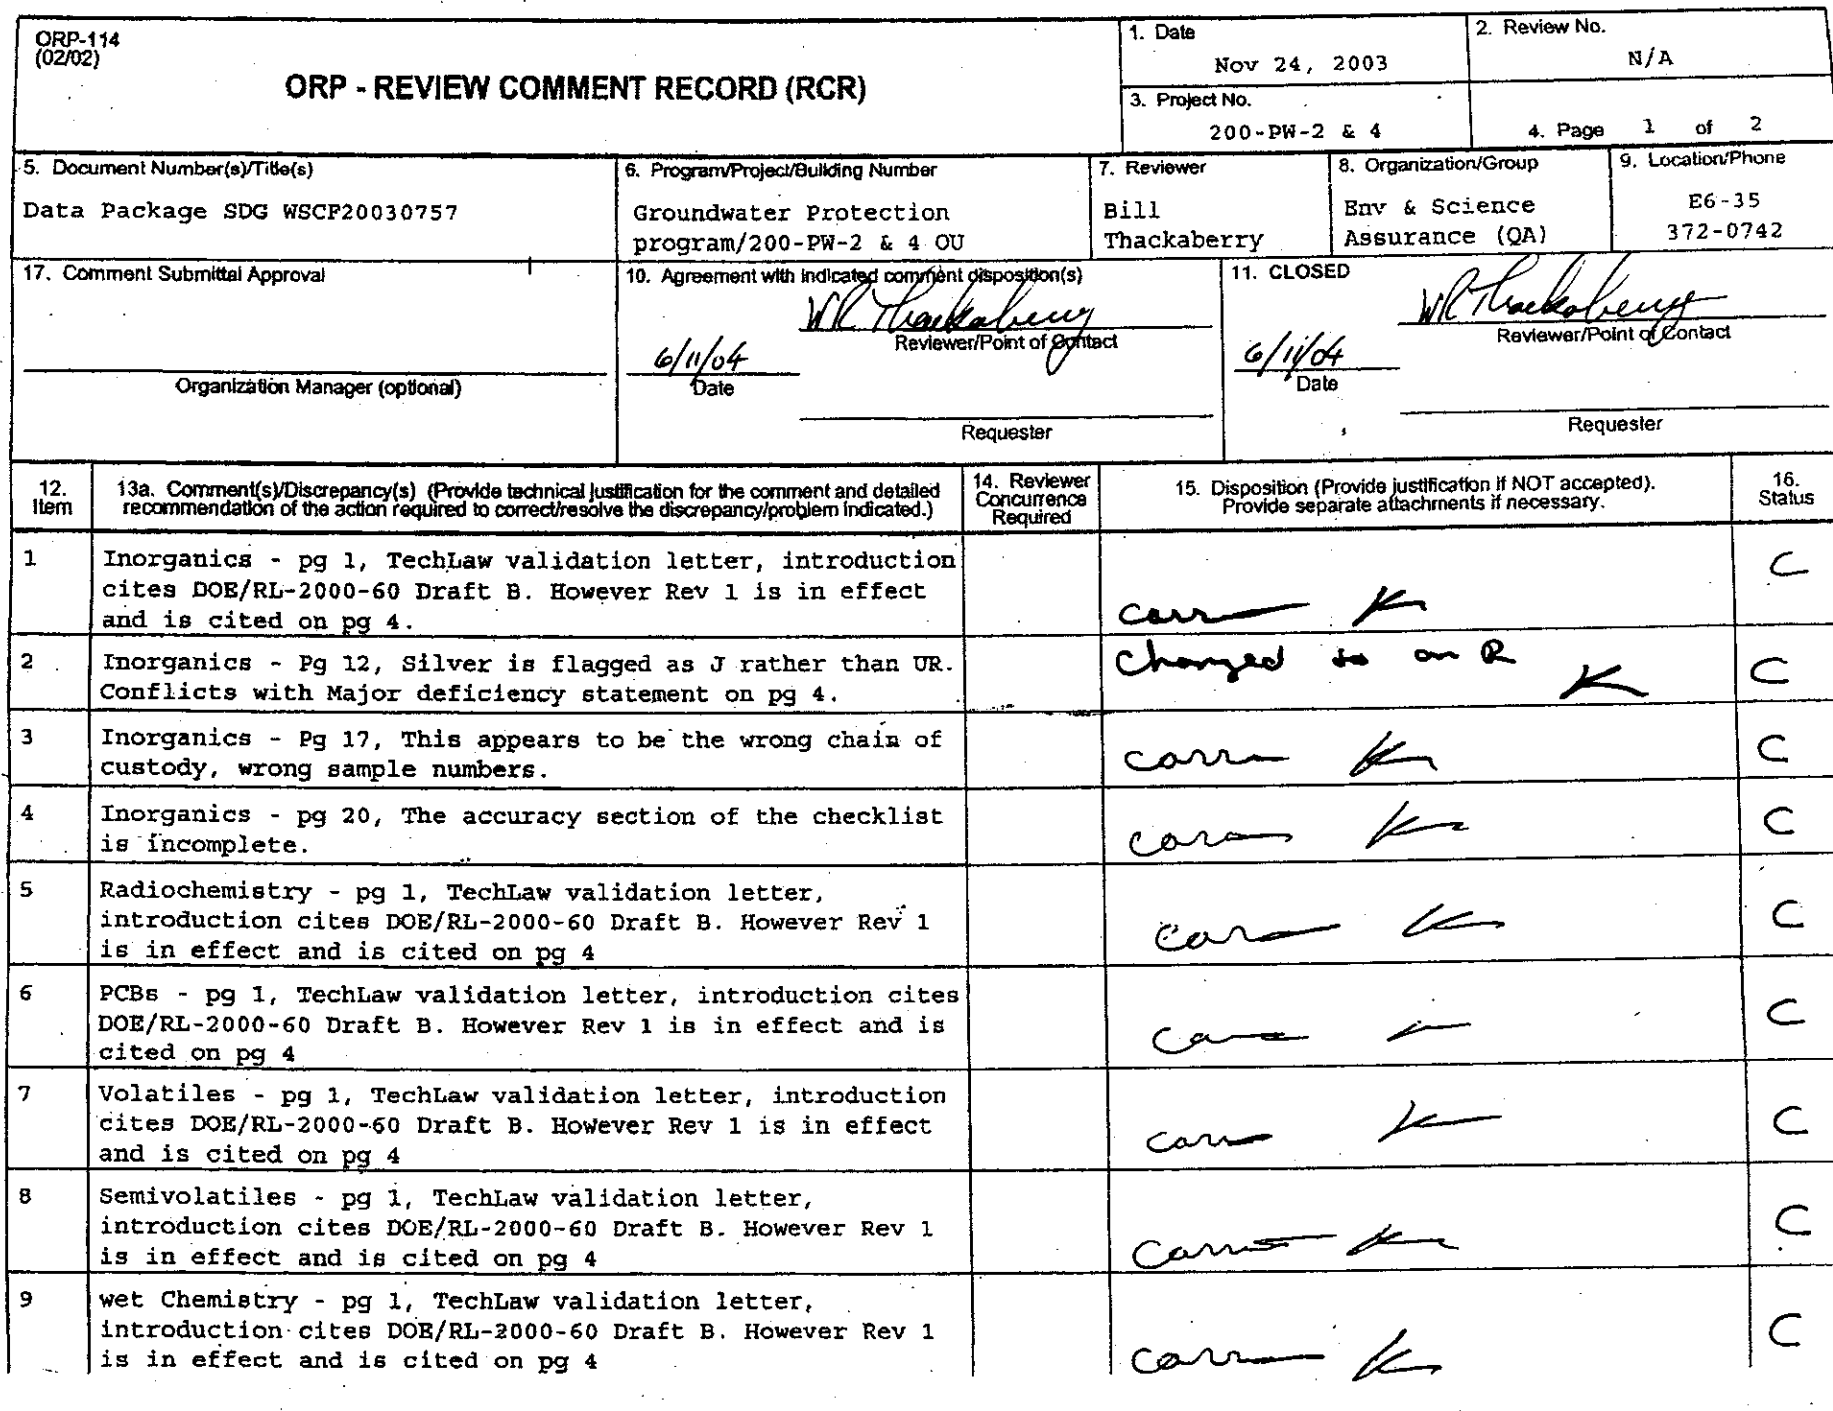 ORP-114
(02/02)
ORP - REVIEW COMMENT RECORD (RCR)
1. Date
Nov 24, 2003
2. Review No.
N/A
3. Project No.
200-PW-2 & 4
4. Page 1 of 2
5. Document Number(s)/Title(s)
Data Package SDG WSCF20030757
6. Program/Project/Building Number
Groundwater Protection
program/200-PW-2 & 4 OU
7. Reviewer
Bill
Thackaberry
8. Organization/Group
Env & Science
Assurance (QA)
9. Location/Phone
E6-35
372-0742
17. Comment Submittal Approval
Organization Manager (optional)
10. Agreement with indicated comment disposition(s)
WR Thackaberry
Reviewer/Point of Contact
6/11/04
Date
Requester
11. CLOSED
WR Thackaberry
Reviewer/Point of Contact
6/11/04
Date
Requester
12.
Item
13a. Comment(s)/Discrepancy(s) (Provide technical justification for the comment and detailed
recommendation of the action required to correct/resolve the discrepancy/problem indicated.)
14. Reviewer
Concurrence
Required
15. Disposition (Provide justification if NOT accepted).
Provide separate attachments if necessary.
16.
Status
1
Inorganics - pg 1, TechLaw validation letter, introduction
cites DOE/RL-2000-60 Draft B. However Rev 1 is in effect
and is cited on pg 4.
C
2
Inorganics - Pg 12, Silver is flagged as J rather than UR.
Conflicts with Major deficiency statement on pg 4.
Changed to an R
C
3
Inorganics - Pg 17, This appears to be the wrong chain of
custody, wrong sample numbers.
C
4
Inorganics - pg 20, The accuracy section of the checklist
is incomplete.
C
5
Radiochemistry - pg 1, TechLaw validation letter,
introduction cites DOE/RL-2000-60 Draft B. However Rev 1
is in effect and is cited on pg 4
C
6
PCBs - pg 1, TechLaw validation letter, introduction cites
DOE/RL-2000-60 Draft B. However Rev 1 is in effect and is
cited on pg 4
C
7
Volatiles - pg 1, TechLaw validation letter, introduction
cites DOE/RL-2000-60 Draft B. However Rev 1 is in effect
and is cited on pg 4
C
8
Semivolatiles - pg 1, TechLaw validation letter,
introduction cites DOE/RL-2000-60 Draft B. However Rev 1
is in effect and is cited on pg 4
C
9
wet Chemistry - pg 1, TechLaw validation letter,
introduction cites DOE/RL-2000-60 Draft B. However Rev 1
is in effect and is cited on pg 4
C